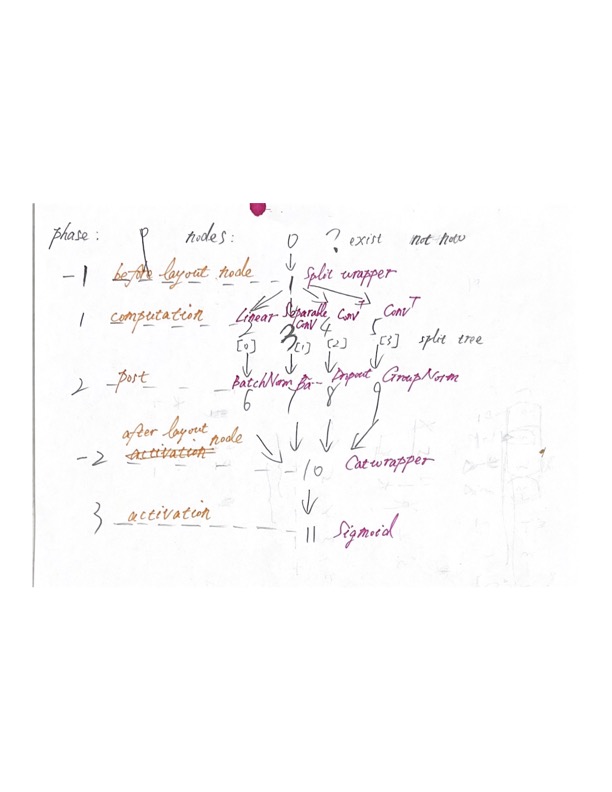 phase: p nodes: 0 ? exist not now
-1 before layout node 1 Split wrapper
1 computation Linear Separable Conv Conv ConvT
2 3 4 5
[0] [1] [2] [3] split tree
2 post BatchNorm Ba- Dropout GroupNorm
6 7 8 9
after layout node
-2 activation 10 Catwrapper
3 activation 11 Sigmoid